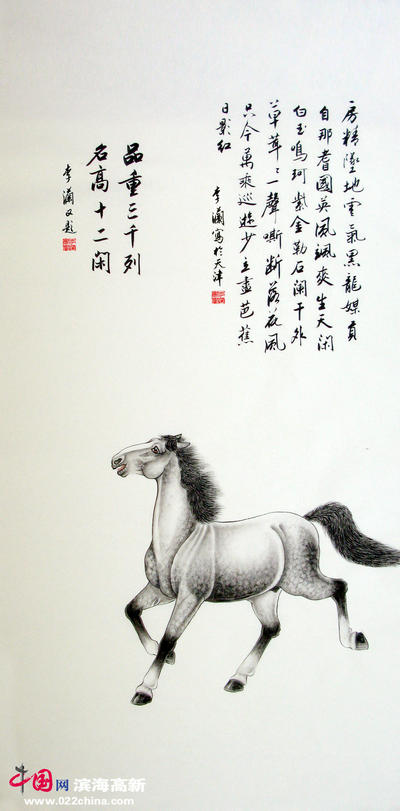 房精墜地雲氣黑龍媒貢
自那耆國英風颯爽生天閑
白玉鳴珂紫金勒石闌干外
草茸々一聲嘶斷落花風
只今萬乘巡遊少立盡芭蕉
日影紅
李瀟寫於天津
品重三千列
名高十二閑
李瀟又題
中国网 滨海高新
www.022china.com